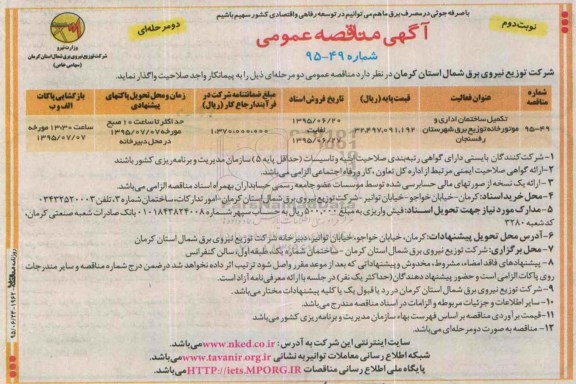 با صرفه جوئی در مصرف برق ما هم می توانیم در توسعه رفاهی و اقتصادی کشور سهیم باشیم
نوبت دوم
آگهی مناقصه عمومی
دو مرحله‌ای
شماره ۴۹-۹۵
وزارت نیرو
شرکت توزیع نیروی برق شمال استان کرمان
(سهامی خاص)
شرکت توزیع نیروی برق شمال استان کرمان در نظر دارد مناقصه عمومی دو مرحله‌ای ذیل را به پیمانکار واجد صلاحیت واگذار نماید.
شماره مناقصه
عنوان فعالیت
قیمت پایه (ریال)
تاریخ فروش اسناد
مبلغ ضمانتنامه شرکت در فرآیند ارجاع کار (ریال)
زمان و محل تحویل پاکتهای پیشنهادی
بازگشایی پاکات الف و ب
۹۵-۴۹
تکمیل ساختمان اداری و موتورخانه توزیع برق شهرستان رفسنجان
۳۲,۴۹۷,۰۹۱,۱۹۲
۱۳۹۵/۰۶/۲۰ لغایت ۱۳۹۵/۰۶/۲۷
۱,۳۷۰,۰۰۰,۰۰۰
حداکثر تا ساعت ۱۰ صبح مورخه ۱۳۹۵/۰۷/۰۷ در محل دبیرخانه
ساعت ۱۳:۳۰ مورخه ۱۳۹۵/۰۷/۰۷
۱-شرکت کنندگان بایستی دارای گواهی رتبه‌بندی صلاحیت ابنیه و تاسیسات (حداقل پایه ۵) سازمان مدیریت و برنامه ریزی کشور باشند
۲-ارائه گواهی صلاحیت ایمنی مرتبط از اداره کل تعاون ،کار و رفاه اجتماعی الزامی می‌باشد.
۳-ارائه یک نسخه از صورتهای مالی حسابرسی شده توسط موسسات عضو جامعه رسمی حسابداران بهمراه اسناد مناقصه الزامی می‌باشد.
۴-محل خرید اسناد: کرمان-خیابان خواجو -خیابان توانیر -شرکت توزیع نیروی برق شمال استان کرمان-امور تدارکات، ساختمان شماره ۳، تلفن ۰۳۴۳۲۵۲۰۰۰۳
۵-مدارک مورد نیاز جهت تحویل اسناد: فیش واریزی به مبلغ ۵۰۰,۰۰۰ ریال به حساب سپهر شماره ۰۱۰۱۸۴۳۸۲۴۰۰۸ بانک صادرات شعبه صنعتی کرمان، کدشعبه ۳۲۸۰
۶-آدرس محل تحویل پیشنهادات: کرمان، خیابان خواجو، خیابان توانیر، دبیرخانه شرکت توزیع نیروی برق شمال استان کرمان
۷-محل برگزاری: شرکت توزیع نیروی برق شمال استان کرمان -ساختمان شماره یک، طبقه اول، سالن کنفرانس
۸-پیشنهادهای فاقد امضاء، مشروط، مخدوش و پیشنهاداتی که بعد از موعد مقرر واصل شود ترتیب اثر داده نخواهد شد درضمن درج شماره مناقصه و سایر مندرجات روی پاکات الزامی است و حضور پیشنهاد دهندگان (حداکثر یک نفر) در جلسه با ارائه معرفی نامه آزاد است.
۹-شرکت توزیع نیروی برق شمال استان کرمان در رد یا قبول یک یا کلیه پیشنهادات مختار می‌باشد.
۱۰-سایر اطلاعات و جزئیات مربوطه و الزامات در اسناد مناقصه مندرج می‌باشد.
۱۱-قیمت برآوردی مناقصه بر اساس فهرست بهاء سازمان مدیریت و برنامه ریزی کشور می‌باشد.
۱۲-مناقصه به صورت دو مرحله‌ای می‌باشد.
سایت اینترنتی این شرکت به آدرس: www.nked.co.ir می‌باشد.
شبکه اطلاع رسانی معاملات توانیر به نشانی www.tavanir.org.ir می‌باشد.
پایگاه ملی اطلاع رسانی مناقصات HTTP://iets.MPORG.IR می‌باشد